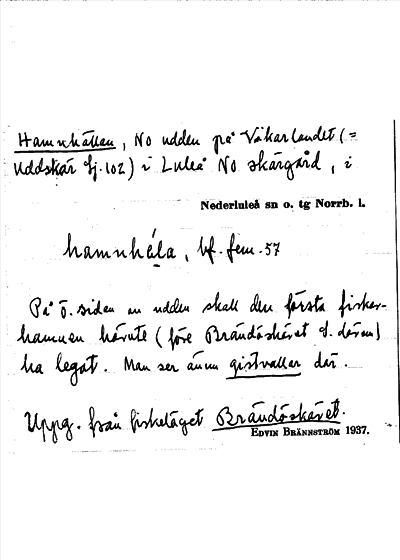 Hamnhällan, NO udden på Våkarlandet (=
Uddskär Sj. 102) i Luleå NO skärgård, i
Nederluleå sn o. tg Norrb. l.
hamnhéla, bf. fem. 57
På ö. sidan av udden skall den första fisker-
hamnen härute (före Brändöskäret S. därom)
ha legat. Man ser ännu gistvallar där.
Uppg. från fiskeläget Brändöskäret.
EDVIN BRÄNNSTRÖM 1937.